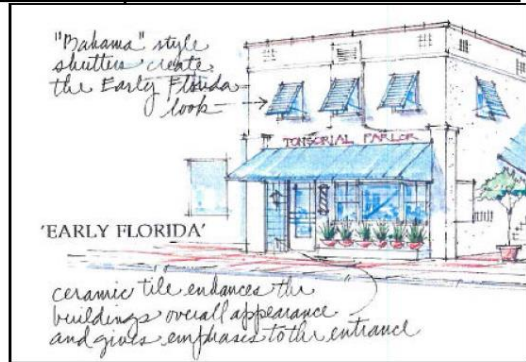 "Bahama" style
shutters create
the Early Florida
look
TONSORIAL PARLOR
'EARLY FLORIDA'
ceramic tile enhances the
buildings overall appearance
and gives emphases to the entrance